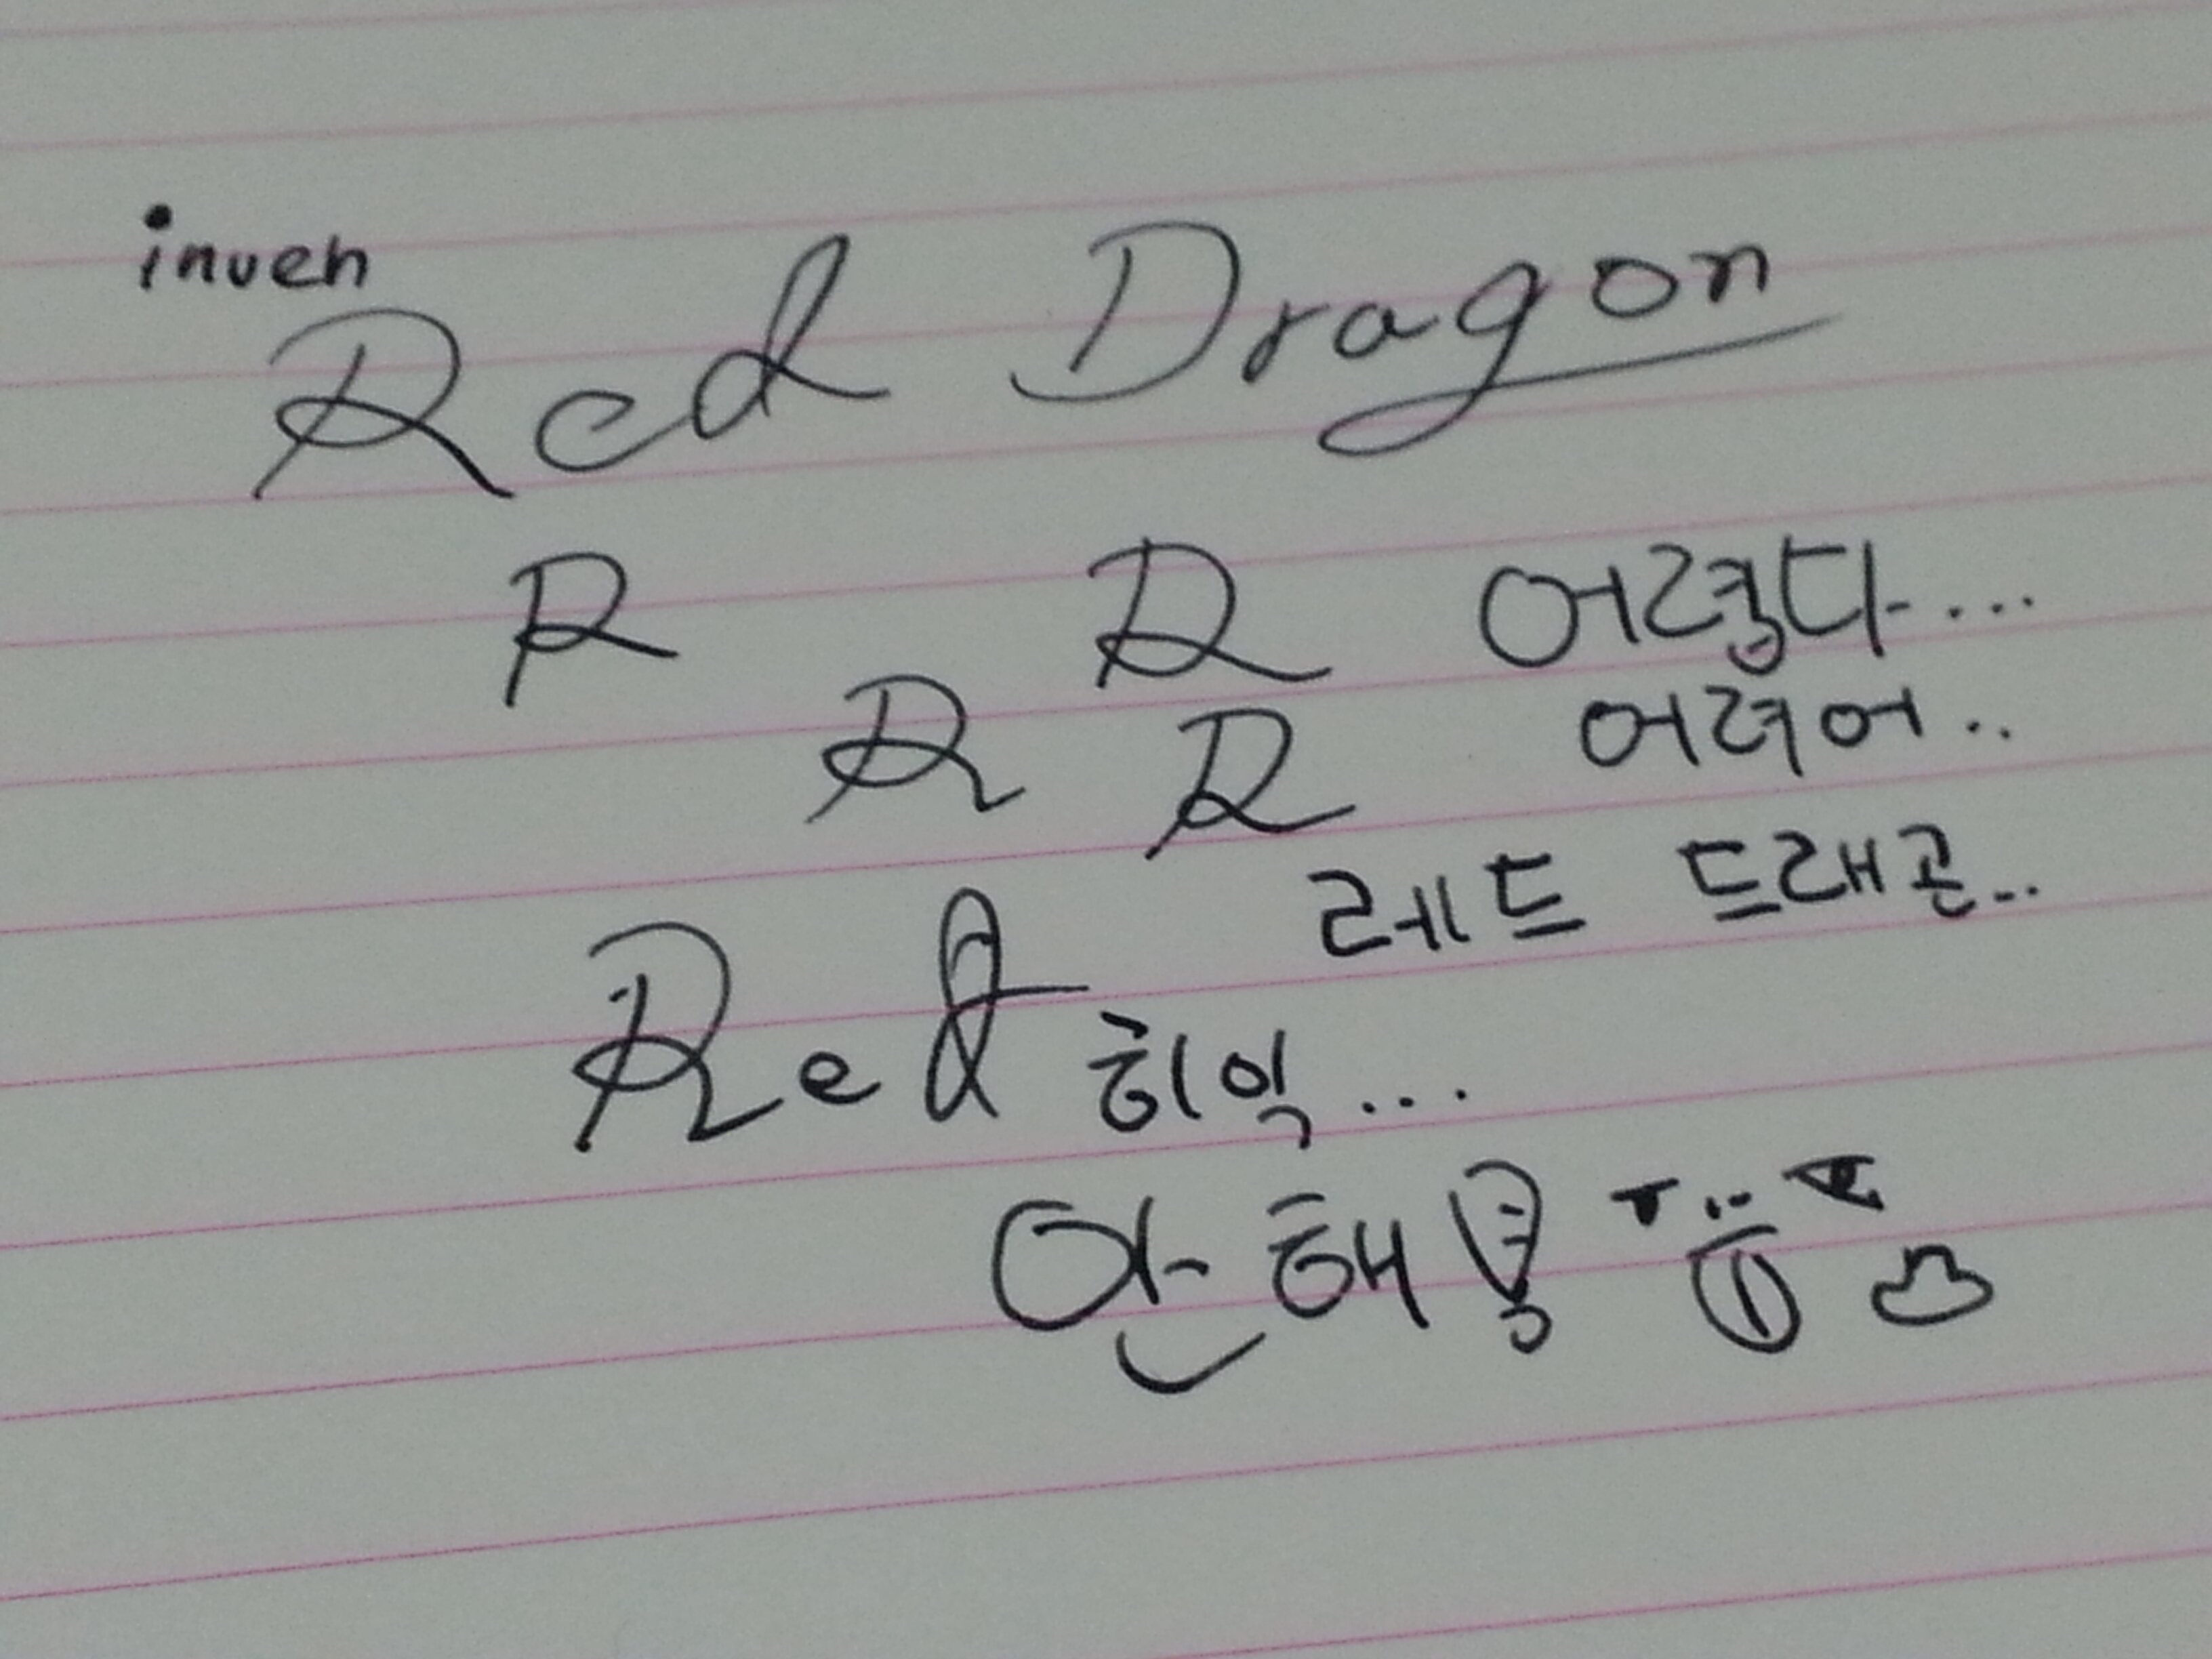 inven
Red Dragon
R R 어렵다...
R R 어려어..
레드 드래곤..
Red 히익...